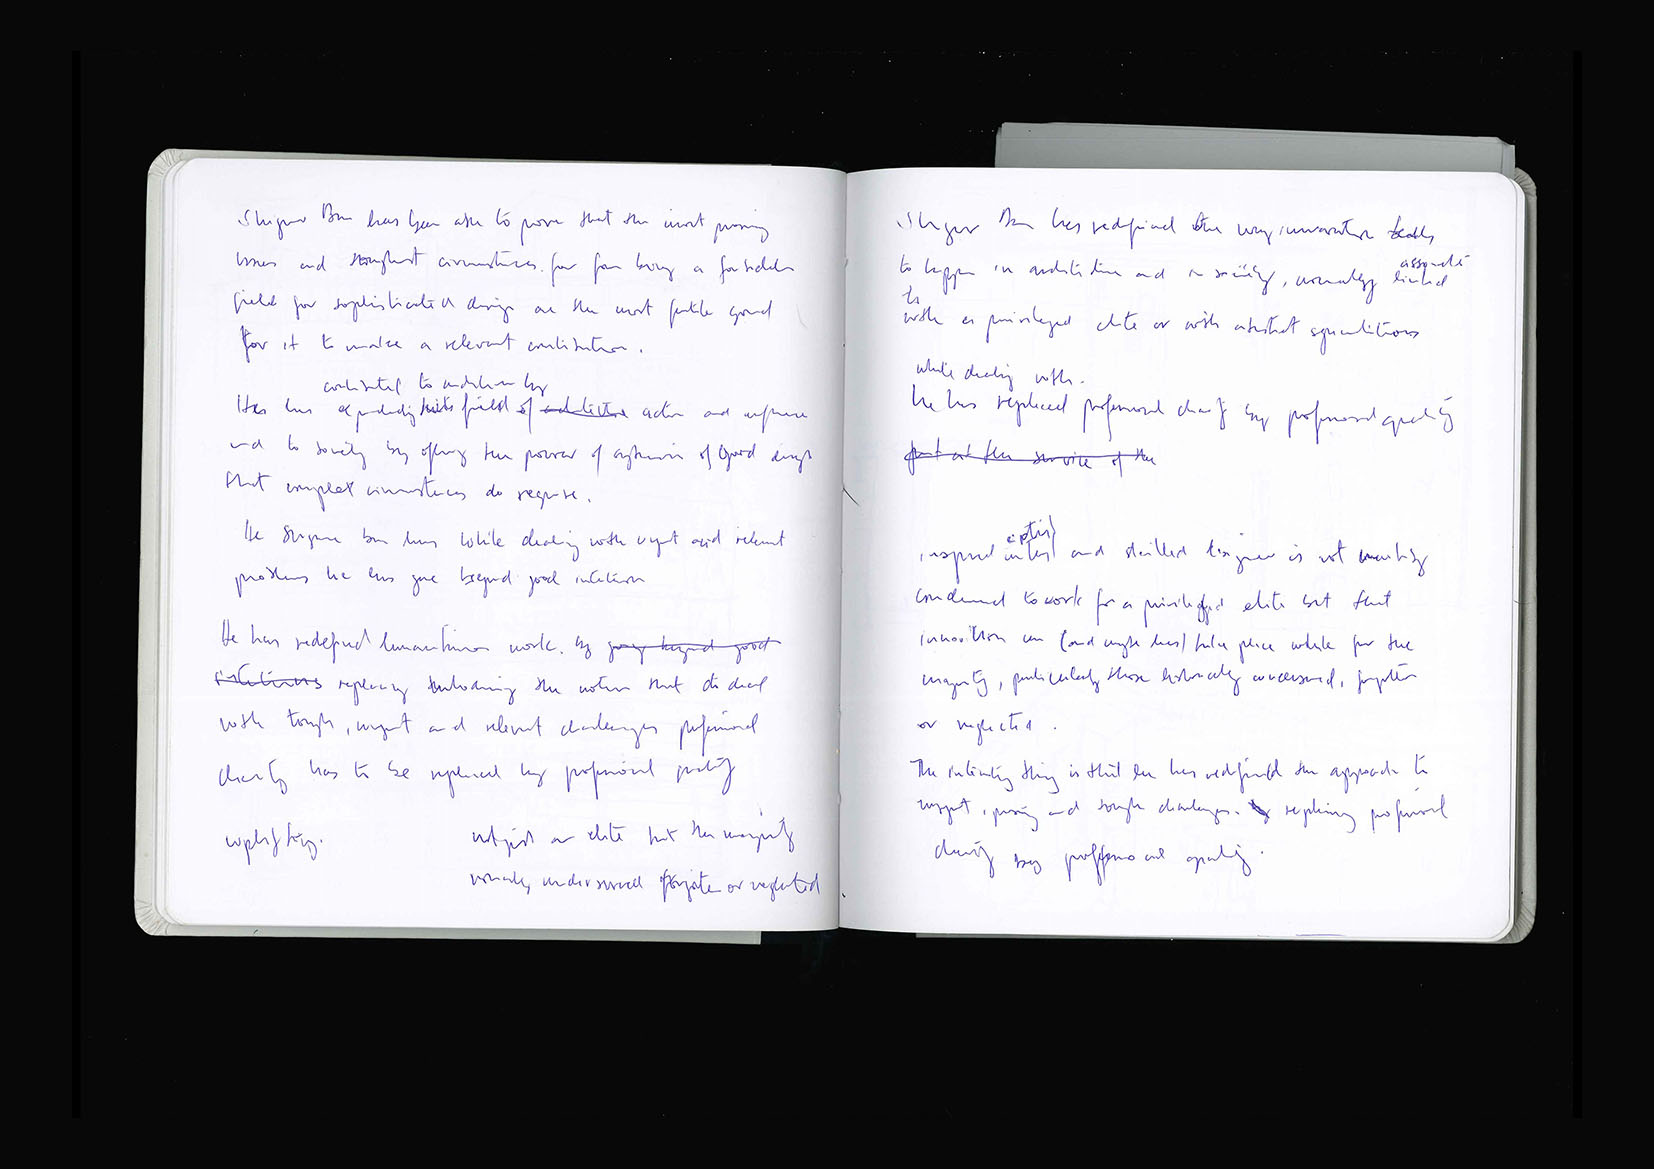 Shigeru Ban has been able to prove that the most pressing
issues and toughest circumstances far from being a forbidden
field for sophisticated design are the most fertile ground
for it to make a relevant contribution.
contributed to architecture by
He has expanding its field of architecture action and
and to society by offering the power of synthesis of good design
that complex circumstances do require.
He Shigeru Ban has While dealing with urgent and relevant
problems he has gone beyond good intentions
He has redefined humanitarian work. by going beyond good
intentions replacing the notion that to deal
with tough, urgent and relevant challenges professional
charity has to be replaced by professional quality
uplifting.
not just an elite but the majority
usually underserved forgotten or neglected
Shigeru Ban has redefined the way innovation
to happen in architecture and in society, normally linked
associated
to
with a privileged elite or with abstract speculations
while dealing with.
he has replaced professional charity by professional quality
put at the service of the
inspired and skilled designer is not
condemned to work for a privileged elite but that
innovation can (and maybe has) take place while for the
majority, particularly those historically forgotten
or neglected.
The interesting thing is that he has redefined the approach to
urgent, pressing and tough challenges. by replacing professional
charity by professional quality.